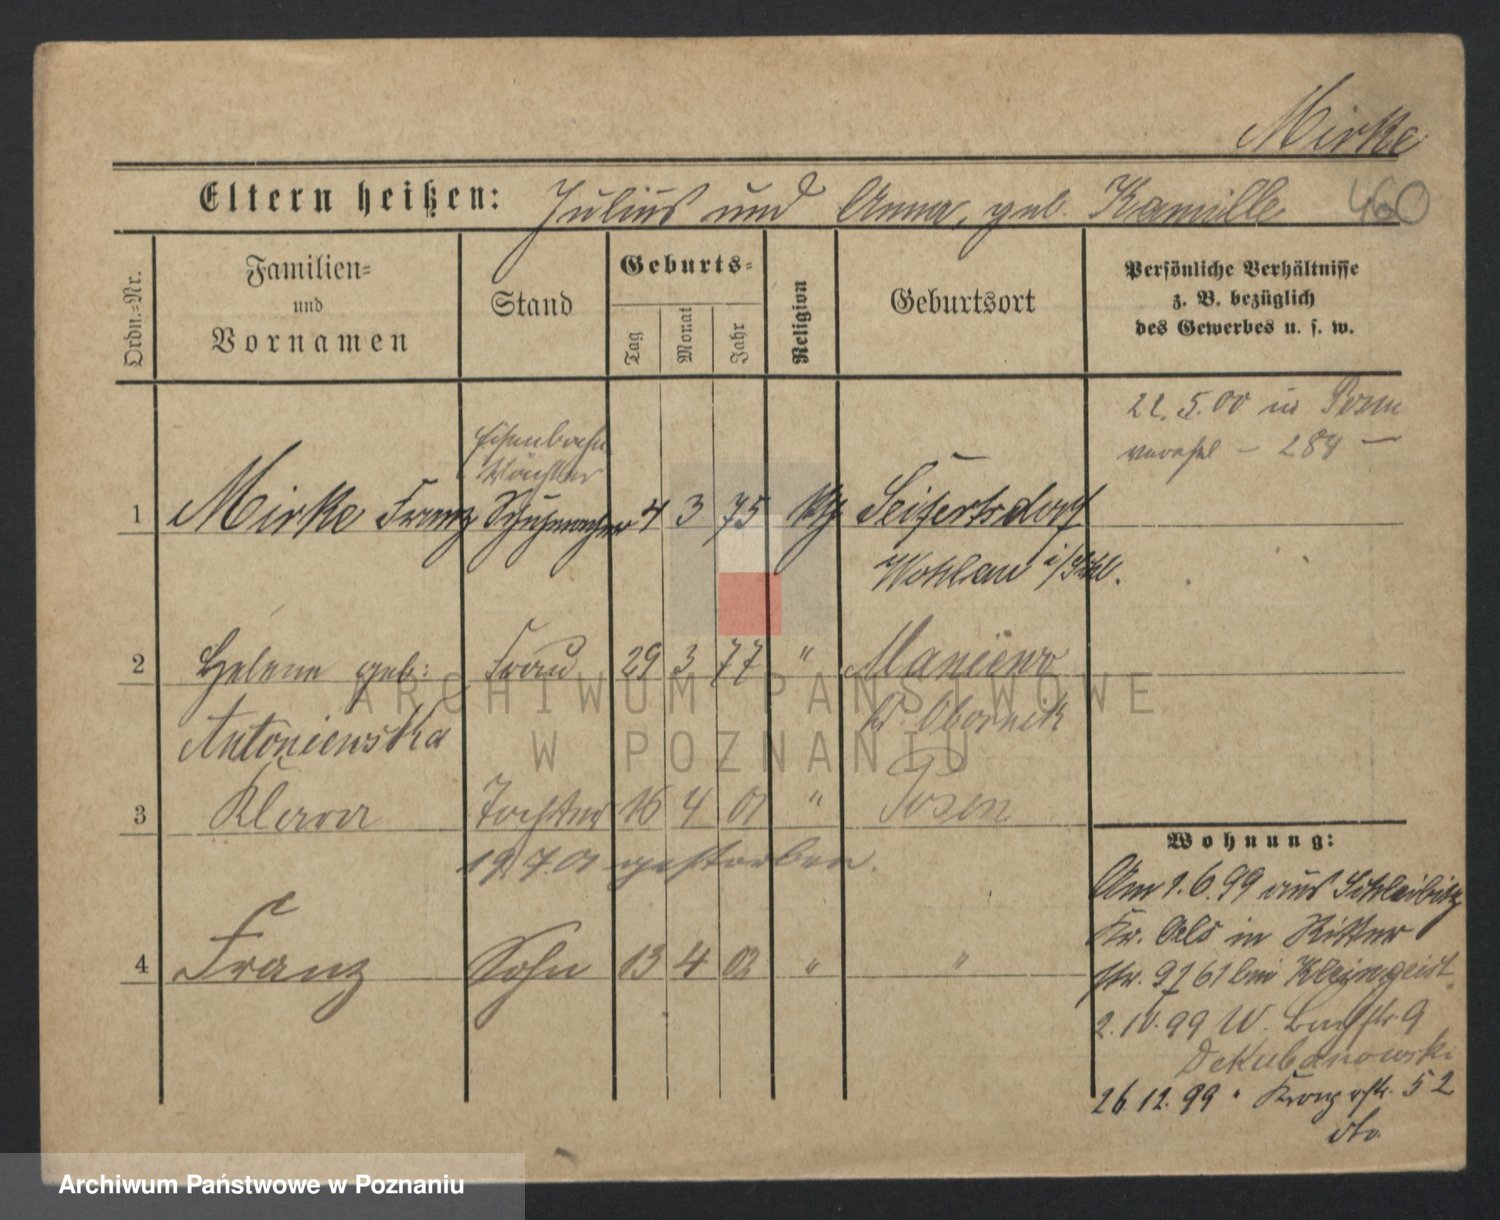 Mirke
Eltern heißen: Julius und Anna, geb. Kamille 460
Ordn.=Nr.
Familien=
und
Vornamen
Stand
Geburts=
Tag
Monat
Jahr
Religion
Geburtsort
Persönliche Verhältnisse
z. B. bezüglich
des Gewerbes u. s. w.
22.5.00 in Posen
verehel – 284 –
Eisenbahn
Wächter
1 Mirke Franz Schuhmacher 4 3 75 Seifertsdorf
Wohlau i/Schl.
2 Helene geb: Frau 29 3 77 " Maniewo
Antoniewska Kr. Obornik
3 Klara Tochter 16 4 01 " Posen
19.7.01 gestorben.
4 Franz Sohn 13 4 02 " "
Wohnung:
Am 1.6.99 aus Schleibitz
Kr. Oels in Ritter
str. bei Kleingeist.
2.10.99 W. 9
Dekubanowski
26.12.99 " 52
ibo
ARCHIWUM PAŃSTWOWE
W POZNANIU
Archiwum Państwowe w Poznaniu